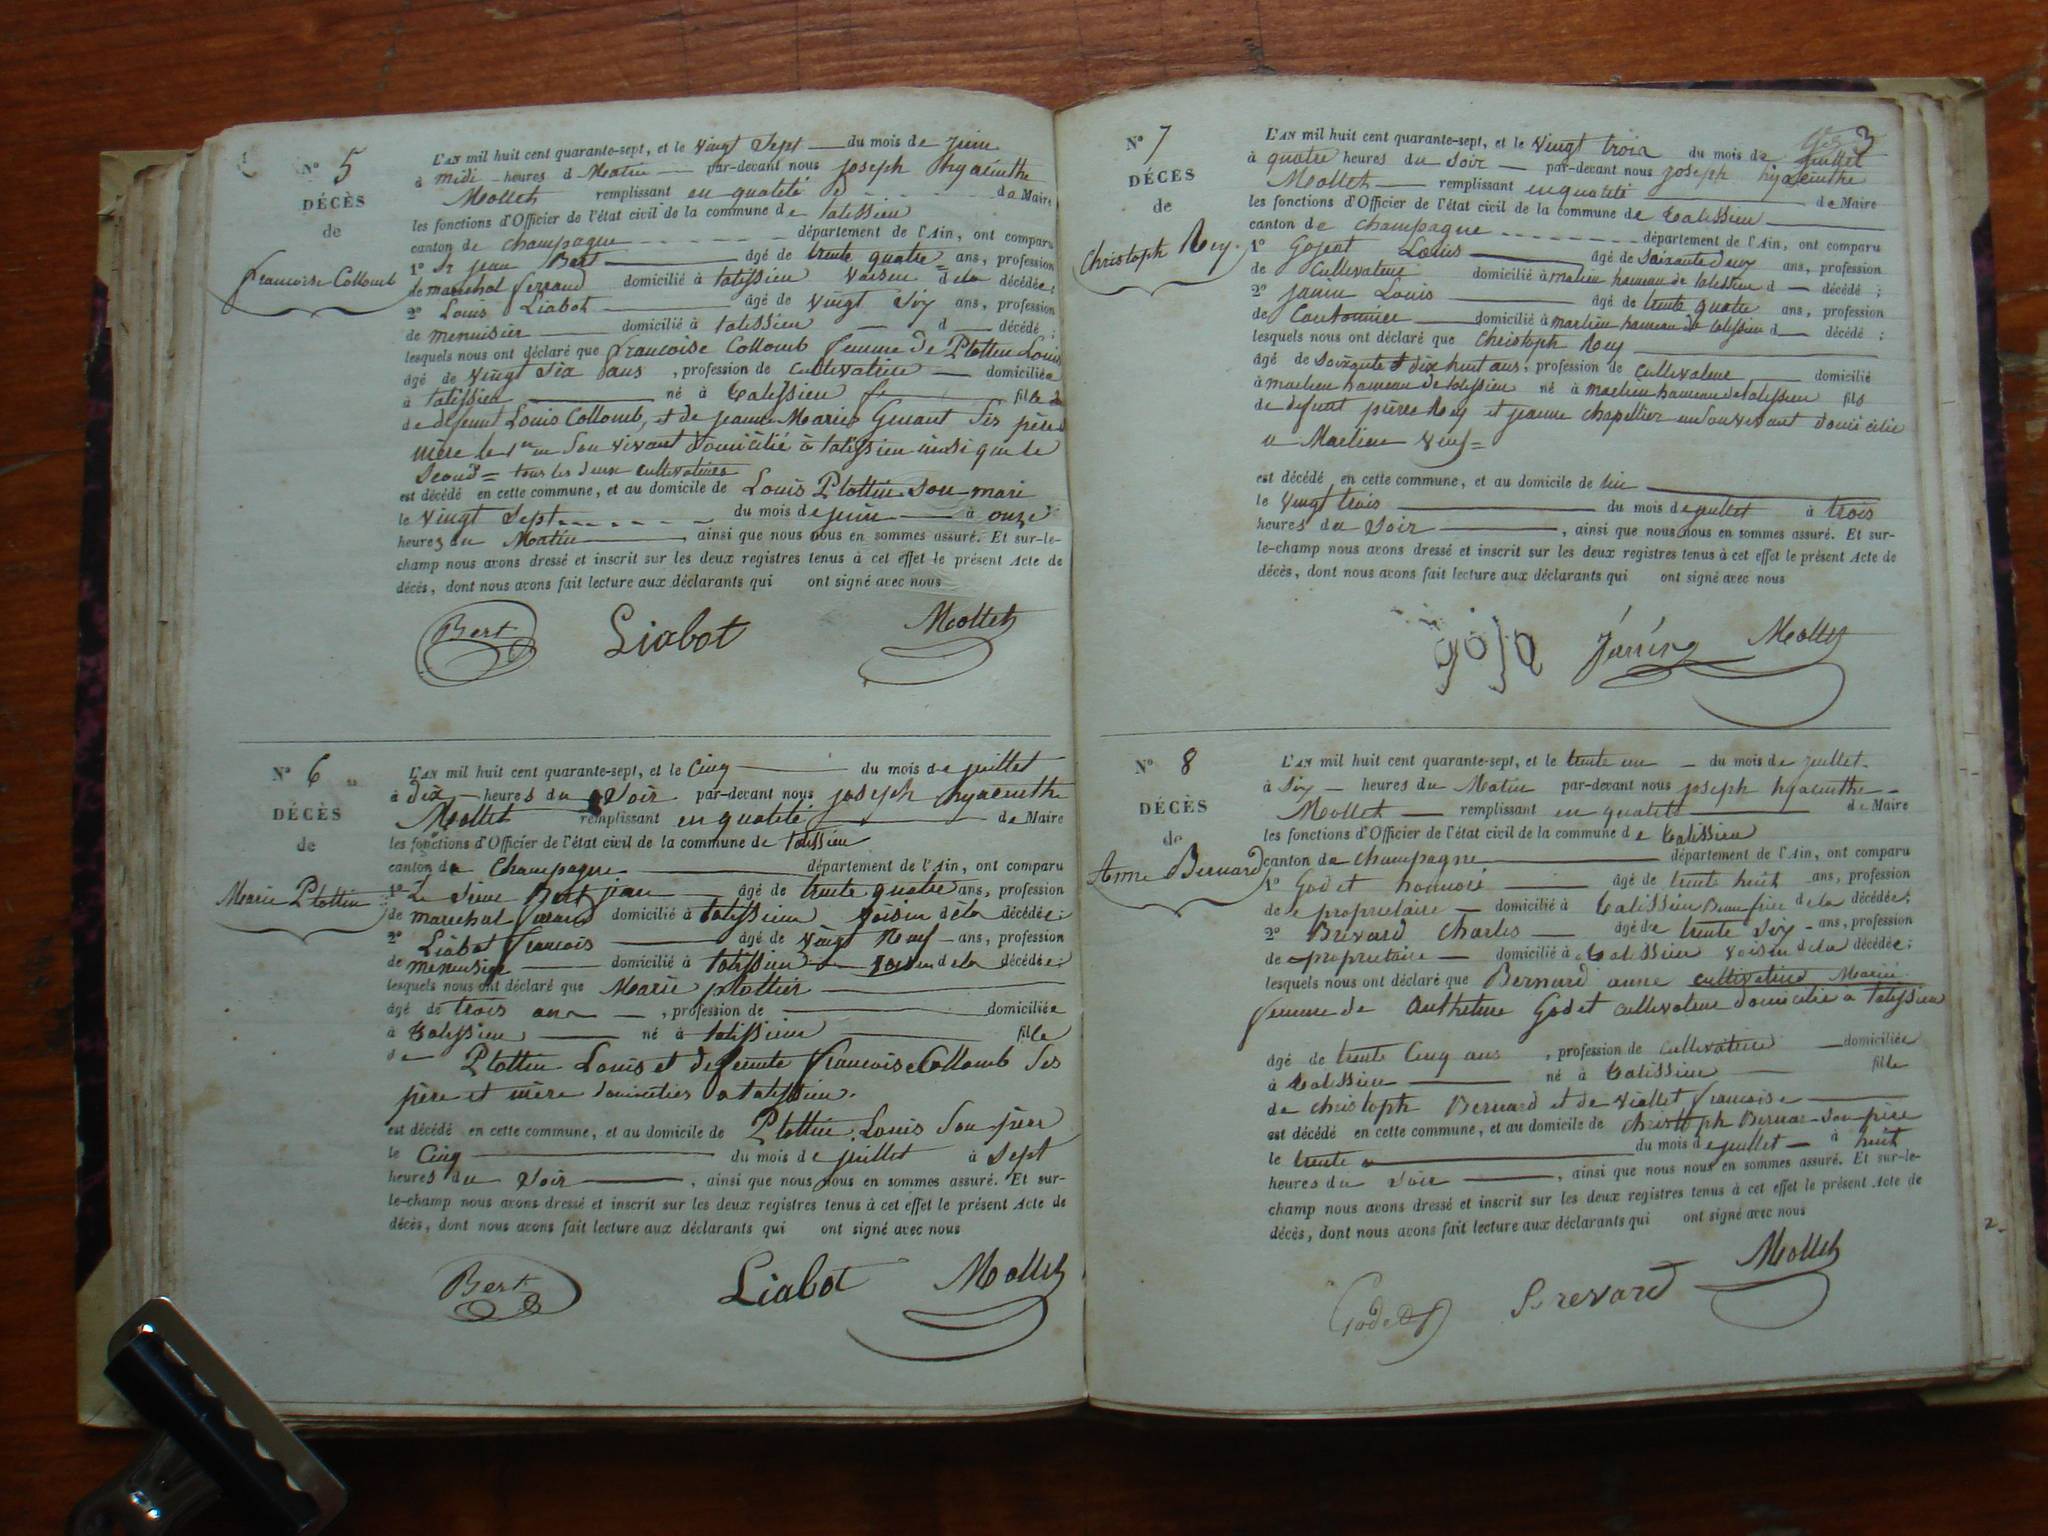 N° 5
DÉCÈS
de
Francoise Collomb
L'AN mil huit cent quarante-sept, et le vingt sept du mois de juin
à midi heures d Matin par-devant nous joseph hyacinthe
Mollet remplissant en qualité de Maire
les fonctions d'Officier de l'état civil de la commune de talissieu
canton de champagne département de l'Ain, ont comparu
1° Sr jean Bert âgé de trente quatre ans, profession
de marechal ferrand domicilié à talissieu voisin de la décédée;
2° Louis Liabot âgé de vingt Six ans, profession
de menuisier domicilié à talissieu d décédé;
lesquels nous ont déclaré que francoise Collomb femme de Plottin Louis
âgé de vingt Six ans, profession de cultivatrice domiciliée
à talissieu né à talissieu fille de
de defeunt Louis Collomb, et de jeanne Marie Ses père
mère le 1er en Son vivant domicilié à talissieu ainsi que le
Second = tous les deux cultivateurs
est décédé en cette commune, et au domicile de Louis Plottin Son mari
le vingt Sept du mois de juin à onze
heures du Matin, ainsi que nous nous en sommes assuré. Et sur-le-
champ nous avons dressé et inscrit sur les deux registres tenus à cet effet le présent Acte de
décès, dont nous avons fait lecture aux déclarants qui ont signé avec nous
Bert Liabot Mollet
N° 6
DÉCÈS
de
Marie Plottin
L'AN mil huit cent quarante-sept, et le Cinq du mois de juillet
à dix heures du Soir par-devant nous joseph hyacinthe
Mollet remplissant en qualité de Maire
les fonctions d'Officier de l'état civil de la commune de talissieu
canton de Champagne département de l'Ain, ont comparu
1° Le Sieur Bert jean âgé de trente quatre ans, profession
de marechal ferrand domicilié à talissieu voisin de la décédée;
2° Liabot francois âgé de vingt Neuf ans, profession
de menuisier domicilié à talissieu voisin de la décédée;
lesquels nous ont déclaré que Marie plottin
âgé de trois ans, profession de domiciliée
à talissieu né à talissieu fille
de Plottin Louis et defeunte francoise Collomb Ses
père et mère domiciliés a talissieu.
est décédé en cette commune, et au domicile de Plottin Louis Son père
le Cinq du mois de juillet à Sept
heures du Soir, ainsi que nous nous en sommes assuré. Et sur-
le-champ nous avons dressé et inscrit sur les deux registres tenus à cet effet le présent Acte de
décès, dont nous avons fait lecture aux déclarants qui ont signé avec nous
Bert Liabot Mollet
3
N° 7
DÉCÈS
de
Christoph Rey
L'AN mil huit cent quarante-sept, et le vingt trois du mois de juillet
à quatre heures du Soir par-devant nous joseph hyacinthe
Mollet remplissant en qualité de Maire
les fonctions d'Officier de l'état civil de la commune de talissieu
canton de champagne département de l'Ain, ont comparu
1° Gojoat Louis âgé de Soixante deux ans, profession
de Cultivateur domicilié à marlieu hameau de talissieu d décédé;
2° Louis âgé de trente quatre ans, profession
de Cantonnier domicilié à marlieu hameau de talissieu d décédé;
lesquels nous ont déclaré que Christoph Rey
âgé de Soixante et dix huit ans, profession de cultivateur domicilié
à marlieu hameau de talissieu né à marlieu hameau de talissieu fils
de defunt pierre Rey et jeanne chapellier en Son vivant domicilié
a Marlieu veuf=
est décédé en cette commune, et au domicile de lui
le vingt trois du mois de juillet à trois
heures du Soir, ainsi que nous nous en sommes assuré. Et sur-
le-champ nous avons dressé et inscrit sur les deux registres tenus à cet effet le présent Acte de
décès, dont nous avons fait lecture aux déclarants qui ont signé avec nous
Mollet
N° 8
DÉCÈS
de
Anne Bernard
L'AN mil huit cent quarante-sept, et le trente un du mois de juillet
à Six heures du Matin par-devant nous joseph hyacinthe
Mollet remplissant en qualité de Maire
les fonctions d'Officier de l'état civil de la commune de talissieu
canton de champagne département de l'Ain, ont comparu
1° Godet honnoré âgé de trente huit ans, profession
de proprietaire domicilié à talissieu Beau frère de la décédée;
2° Brevard Charles âgé de trente Six ans, profession
de proprietaire domicilié à talissieu voisin de la décédée;
lesquels nous ont déclaré que Bernard anne cultivatrice Mariée
femme de Anthelme Godet cultivateur domicilié a talissieu
âgé de trente Cinq ans, profession de cultivatrice domiciliée
à talissieu né à talissieu fille
de christoph Bernard et de viallet francoise
est décédé en cette commune, et au domicile de christoph Bernard Son père
le trente du mois de juillet à huit
heures du Soir, ainsi que nous nous en sommes assuré. Et sur-le-
champ nous avons dressé et inscrit sur les deux registres tenus à cet effet le présent Acte de
décès, dont nous avons fait lecture aux déclarants qui ont signé avec nous
Godet Brevard Mollet
2